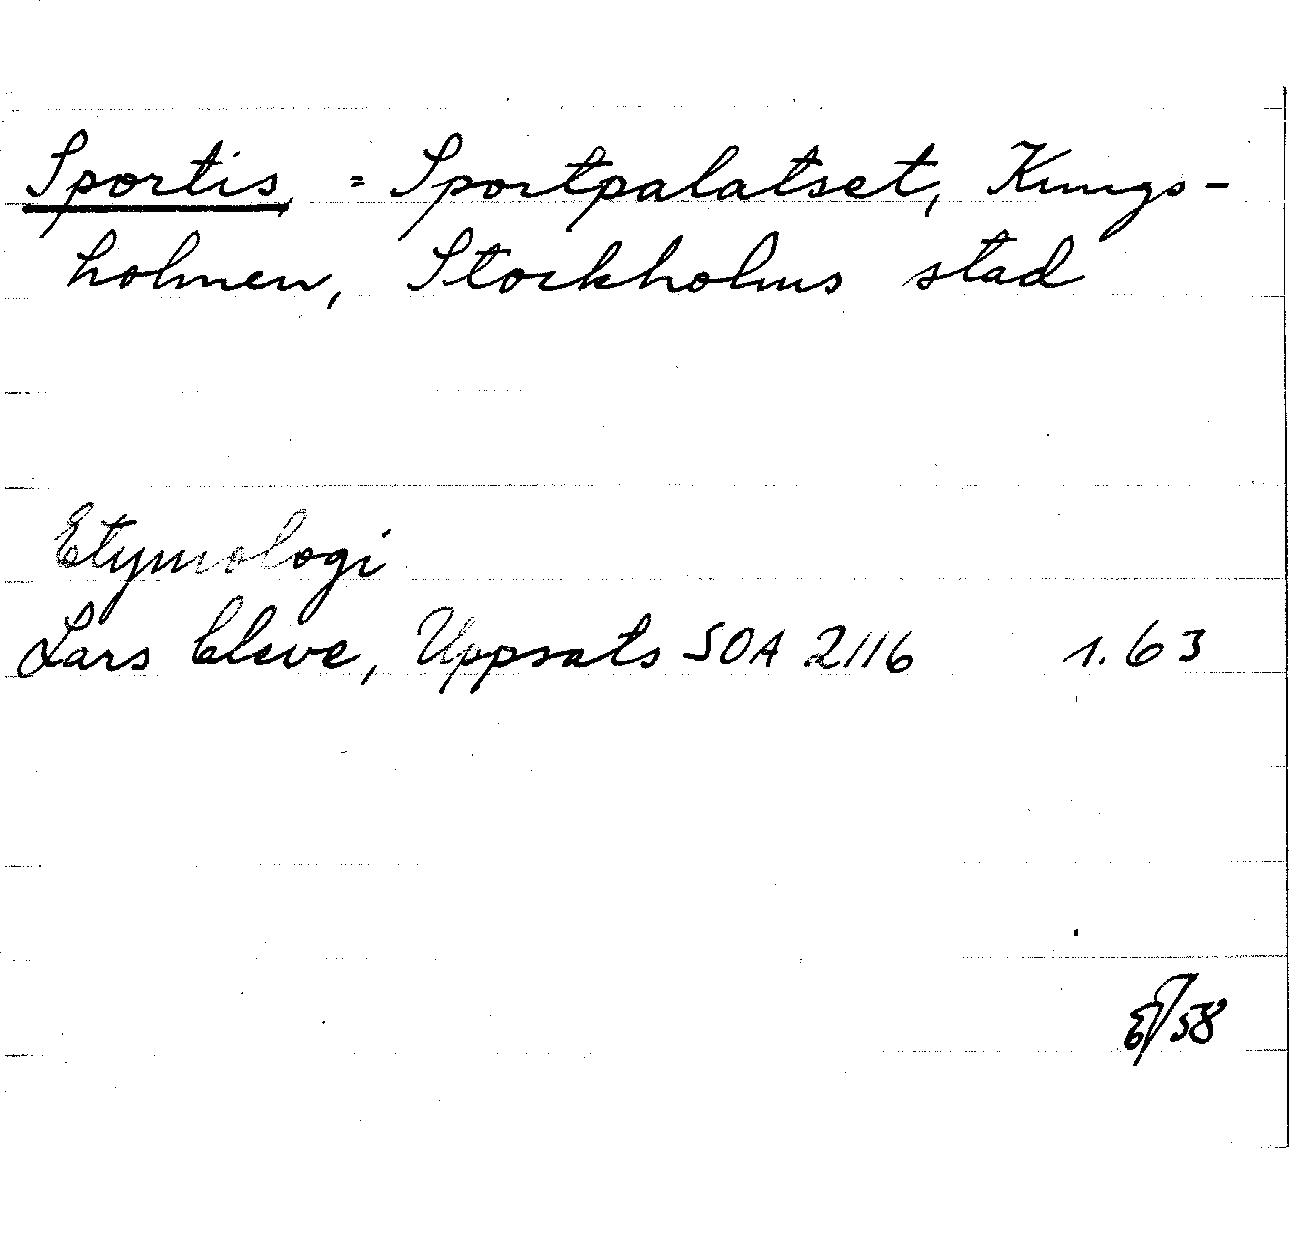 Sportis = Sportpalatset, Kungs-
holmen, Stockholms stad
Etymologi
Lars Cleve, Uppsats SOA 2116 1.63
58